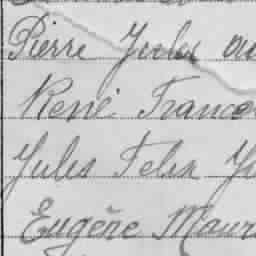 Pierre Jules au
René France
Jules Felix Ju
Eugène Maur